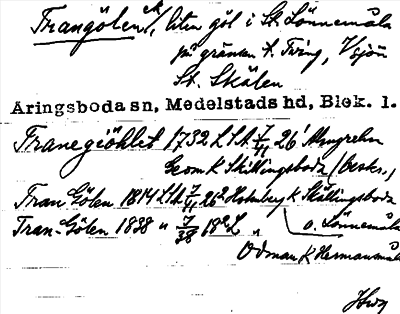 Trangölen, liten göl i St. Lönnemåla
på gränsen t. Tving, V sjön
St. Skälen
Aringsboda sn, Medelstads hd, Blek. l.
Tranegiöhlet 1732 LSA 7/VI 26¹ Almgrehn
Geom K Skillingsboda (beskr.)
Tran Gölen 1814 LSA 7/VI 26² Holmberg K Skällingsboda
Tran-Gölen 1838 " 7/38 18² L " o. Lönnemåla
Ödman K Hermansmåla